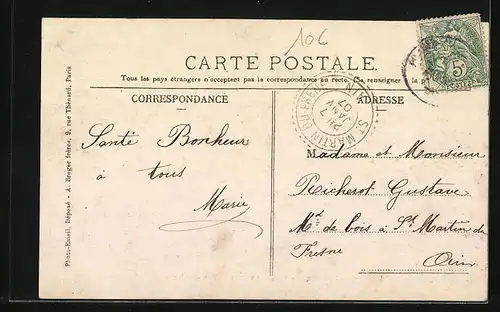 106
CARTE POSTALE.
Tous les pays étrangers n'acceptent pas la correspondance au recto. (Se renseigner à la Poste
CORRESPONDANCE
ADRESSE
Santé Bonheur
à tous
Marie
Madame et Monsieur
Richerot Gustave
Md de bois à St Martin du
Fresne
Ain
ST MARTIN DU FRESNE
AIN
2
JANV
07
5
Photo-Email, Déposé - A. Berger frères, 9, rue Thénard, Paris